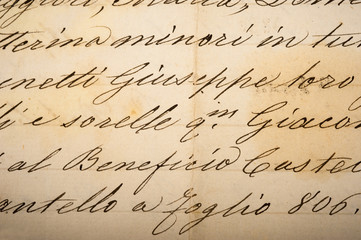 tterina minori in tu
netti Giuseppe loro
li e sorelle qm Giacom
al Beneficio Castel
antello a foglio 806.